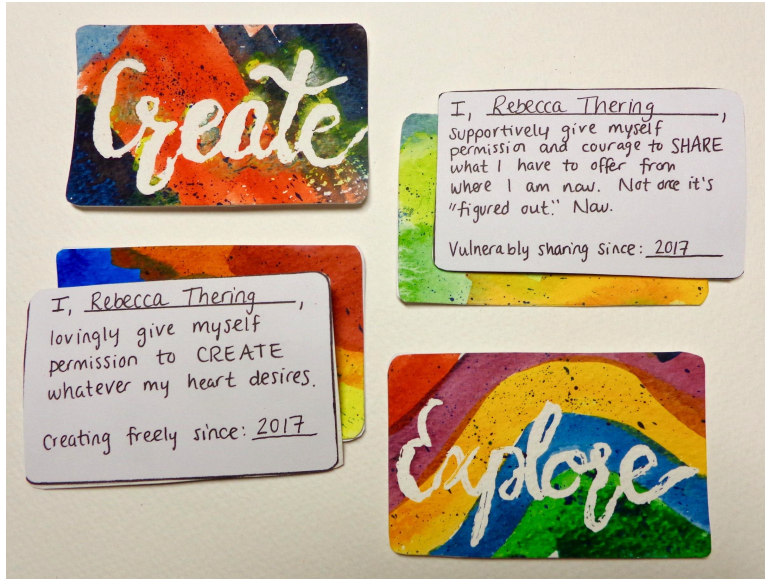 Create
I, Rebecca Thering,
supportively give myself
permission and courage to SHARE
what I have to offer from
where I am now. Not once it's
"figured out." Now.
Vulnerably sharing since: 2017
I, Rebecca Thering,
lovingly give myself
permission to CREATE
whatever my heart desires.
Creating freely since: 2017
Explore